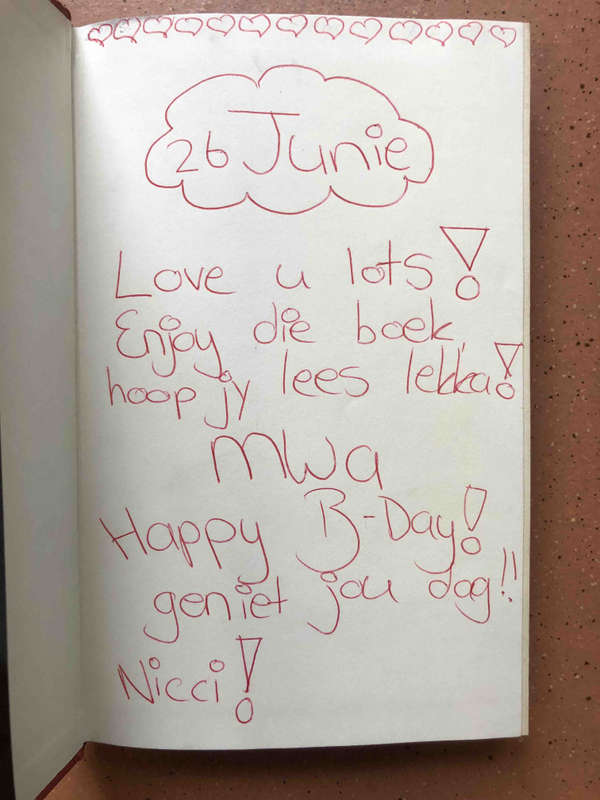 26 Junie
Love u lots!
Enjoy die boek,
hoop jy lees lekka!
mwa
Happy B-Day!
geniet jou dag!!
Nicci!